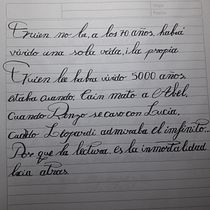 Quien no la, a los 70 años, habrá
vivido una sola vida, ¡la propia
Quien la habra vivido 5000 años
estaba cuando, Cain mato a Abel,
cuando Renzo se caso con Lucia,
cuando Leopardi admiraba el imfinito..
Por que la lectura, es la inmortalidad
hacia atras.